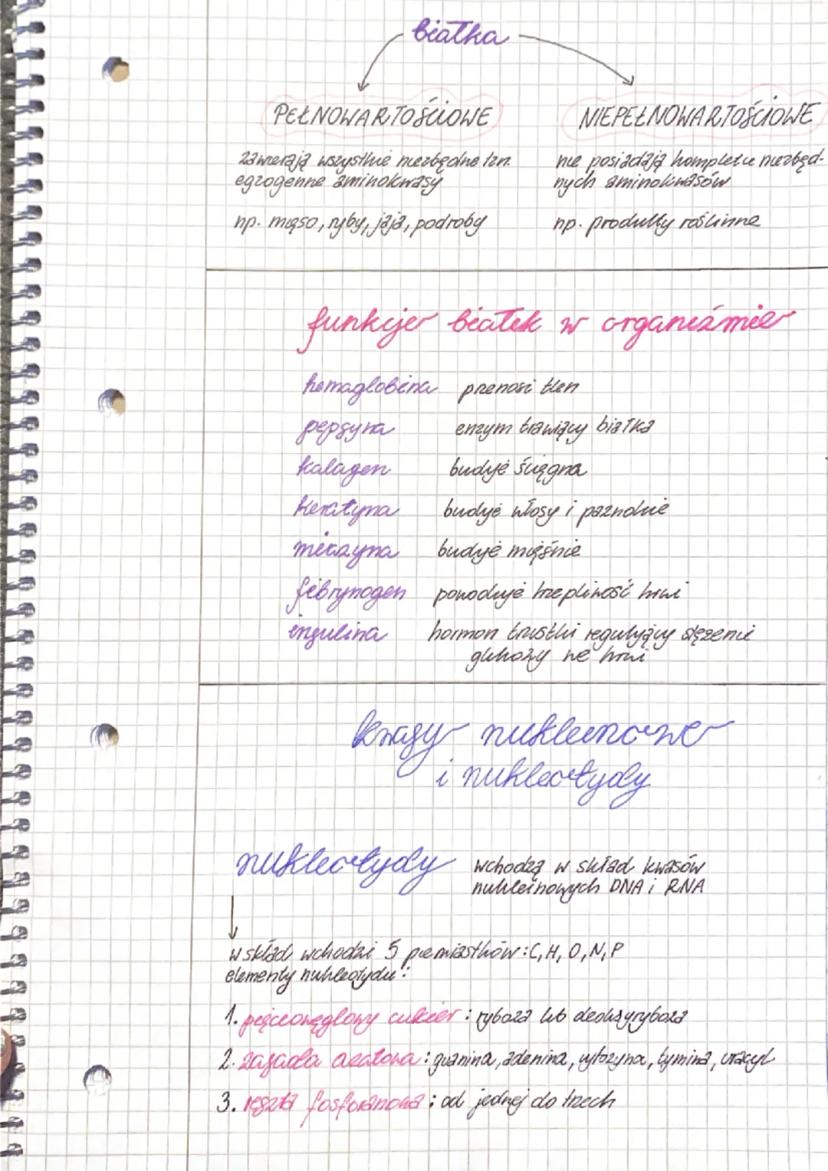 białka
PEŁNOWARTOŚCIOWE NIEPEŁNOWARTOŚCIOWE
zawierają wszystkie niezbędne tzn. nie posiadają kompletu niezbęd-
egzogenne aminokwasy nych aminokwasów
np. mięso, ryby, jaja, podroby np. produkty roślinne
funkcje białek w organiźmie
hemoglobina przenosi tlen
pepsyna enzym trawiący białka
kolagen buduje ścięgna
keratyna buduje włosy i paznokcie
miozyna buduje mięśnie
fibrynogen powoduje krzepliwość krwi
insulina hormon trzustki regulujący stężenie
glukozy we krwi
kwasy nukleinowe
i nukleotydy
nukleotydy wchodzą w skład kwasów
nukleinowych DNA i RNA
w skład wchodzi 5 pierwiastków: C, H, O, N, P
elementy nukleotydu:
1. pięciowęglowy cukier: ryboza lub deoksyryboza
2. zasada azotowa: guanina, adenina, cytozyna, tymina, uracyl
3. reszta fosforanowa: od jednej do trzech